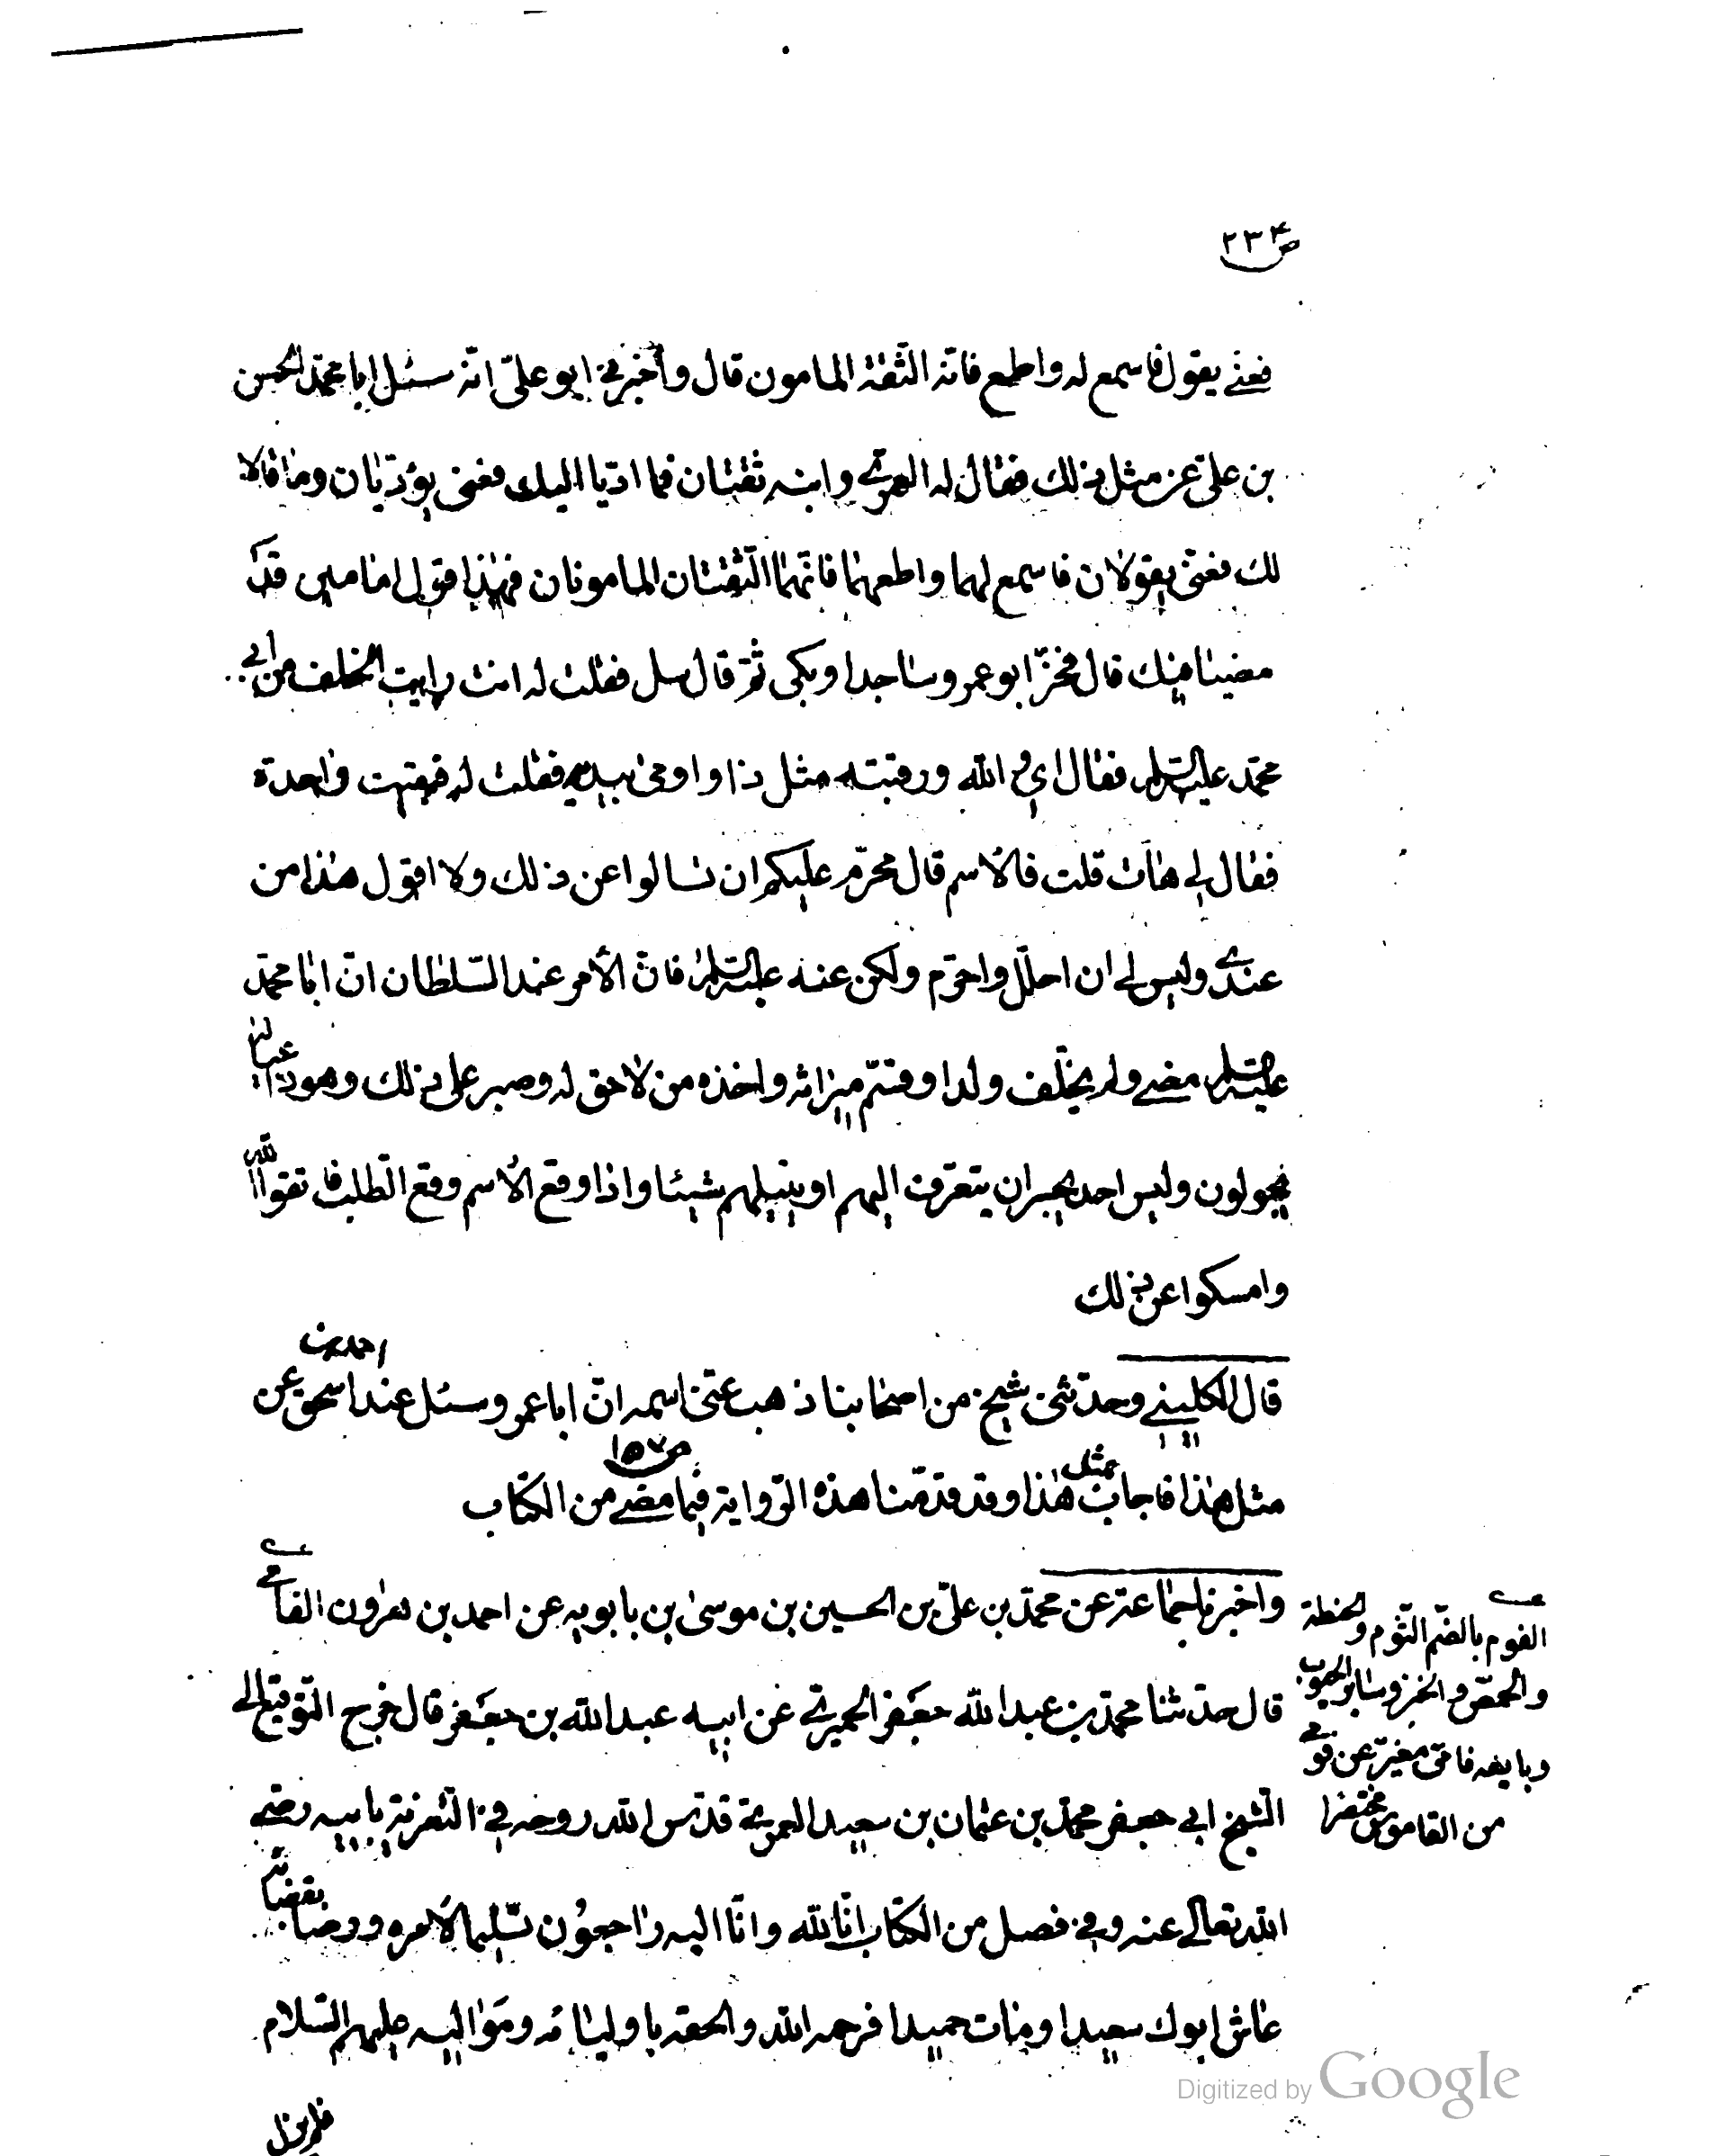 ص ٢٣٤
فعني يقول فاسمع له واطع فانه الثقة المامون قال وأخبرني ابو علي انه سئل ابا محمد الحسن
بن علي عن مثل ذلك فقال له العمري وابنه ثقتان فما اديا اليك فعني يؤديان وما قالا
لك فعني يقولان فاسمع لهما واطعهما فانهما الثقتان المامونان فهذا قول امامين قد
مضينا فيك قال فخر ابو عمرو ساجدا وبكى ثم قال سل فقلت له انت رايت الخلف من ابي
محمد عليه السلم فقال اي والله ورقبته مثل ذا واومى بيديه فقلت له فبقيت واحدة
فقال لي هات قلت فالاسم قال محرم عليكم ان تسالوا عن ذلك ولا اقول هذا من
عندي وليس لي ان احلل واحرم ولكن عنه عليه السلم فان الأمر عند السلطان ان ابا محمد
عليه السلم مضى ولم يخلف ولدا وقسم ميراثه واخذه من لا حق له وصبر على ذلك وهو ذا عياله
يجولون وليس احد يجسر ان يتعرف اليهم او ينيلهم شيئا واذا وقع الأسم وقع الطلب فاتقوا الله
وامسكوا عن ذلك
قال الكليني وحدثني شيخ من اصحابنا ذهب عني اسمه ان ابا عمرو سئل عند احمد بن اسحق عن
مثل هذا فاجاب بمثل هذا وقد قدمنا هذه الرواية فيما مضى من الكتاب
ص ١٥٧
واخبرنا جماعة عن محمد بن علي بن الحسين بن موسى بن بابويه عن احمد بن هرون الفامي
قال حدثنا محمد بن عبد الله جعفر الحميري عن ابيه عبد الله بن جعفر قال خرج التوقيع الى
الشيخ ابي جعفر محمد بن عثمان بن سعيد العمري قدس الله روحه في التعزية بابيه رضي
الله تعالى عنه وفي فصل من الكتاب انا لله وانا اليه راجعون تسليما لأمره ورضا بقضائه
عاش ابوك سعيدا ومات حميدا فرحمه الله والحقه باوليائه ومواليه عليهم السلام
فلم يزل
الفوم بالضم الثوم والحنطة
والحمص والخبز وسائر الحبوب
وبايعه فامي مغير عن فومي
من القاموس مختصرا
Digitized by Google